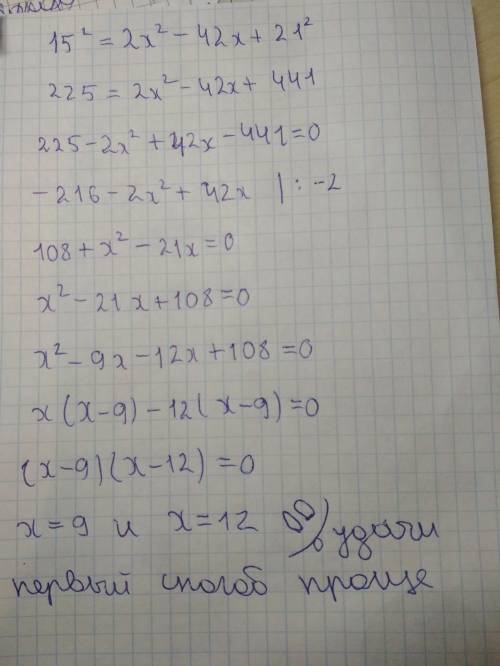 15² = 2x² - 42x + 21²
225 = 2x² - 42x + 441
225 - 2x² + 42x - 441 = 0
- 216 - 2x² + 42x | : -2
108 + x² - 21x = 0
x² - 21x + 108 = 0
x² - 9x - 12x + 108 = 0
x (x - 9) - 12 (x - 9) = 0
(x - 9) (x - 12) = 0
x = 9 и x = 12 удачи
первый способ проще